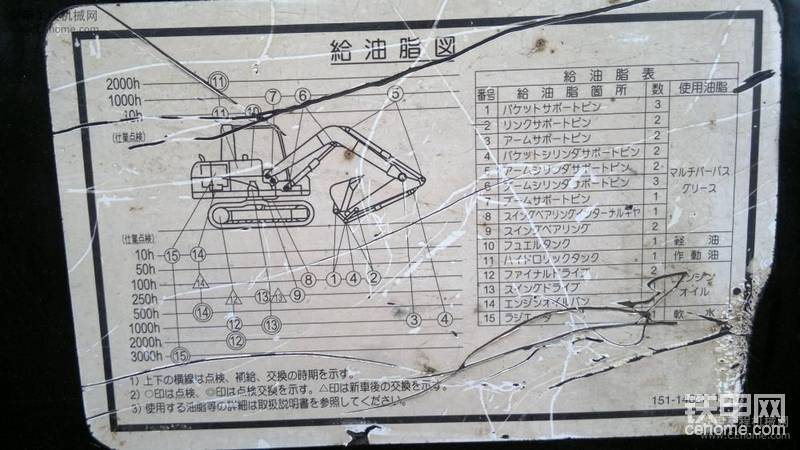 給油脂図
2000h
1000h
(仕業点検)
⑪
⑦ ⑥ ⑤
⑪ ⑩
(仕業点検)
10h ⑮ ⑭
50h
100h ⑭ ⑧ ① ④ ②
250h ⑫ ⑬ ⑬ ⑨
500h ⑭
1000h ⑫ ⑬ ③ ④
2000h ⑫
3000h ⑮
給油脂表
番号 給油脂箇所 数 使用油脂
1 バケットサポートピン 3
2 リンクサポートピン 2
3 アームサポートピン 2
4 バケットシリンダサポートピン 2
5 アームシリンダサポートピン 2
マルチパーパス
グリース
6 ブームシリンダサポートピン 3
7 ブームサポートピン 1
8 スイングベアリングインターナルギヤ 1
9 スイングベアリング 2
10 フュエルタンク 1 軽油
11 ハイドロリックタンク 1 作動油
12 ファイナルドライブ 2
13 スイングドライブ
エンジン
オイル
14 エンジンオイルパン
15 ラジエータ 1 軟水
1) 上下の横線は点検、補給、交換の時期を示す。
2) ○印は点検、◎印は点検交換を示す。△印は新車後の交換を示す。
3) 使用する油脂等の詳細は取扱説明書を参照してください。
铁甲网